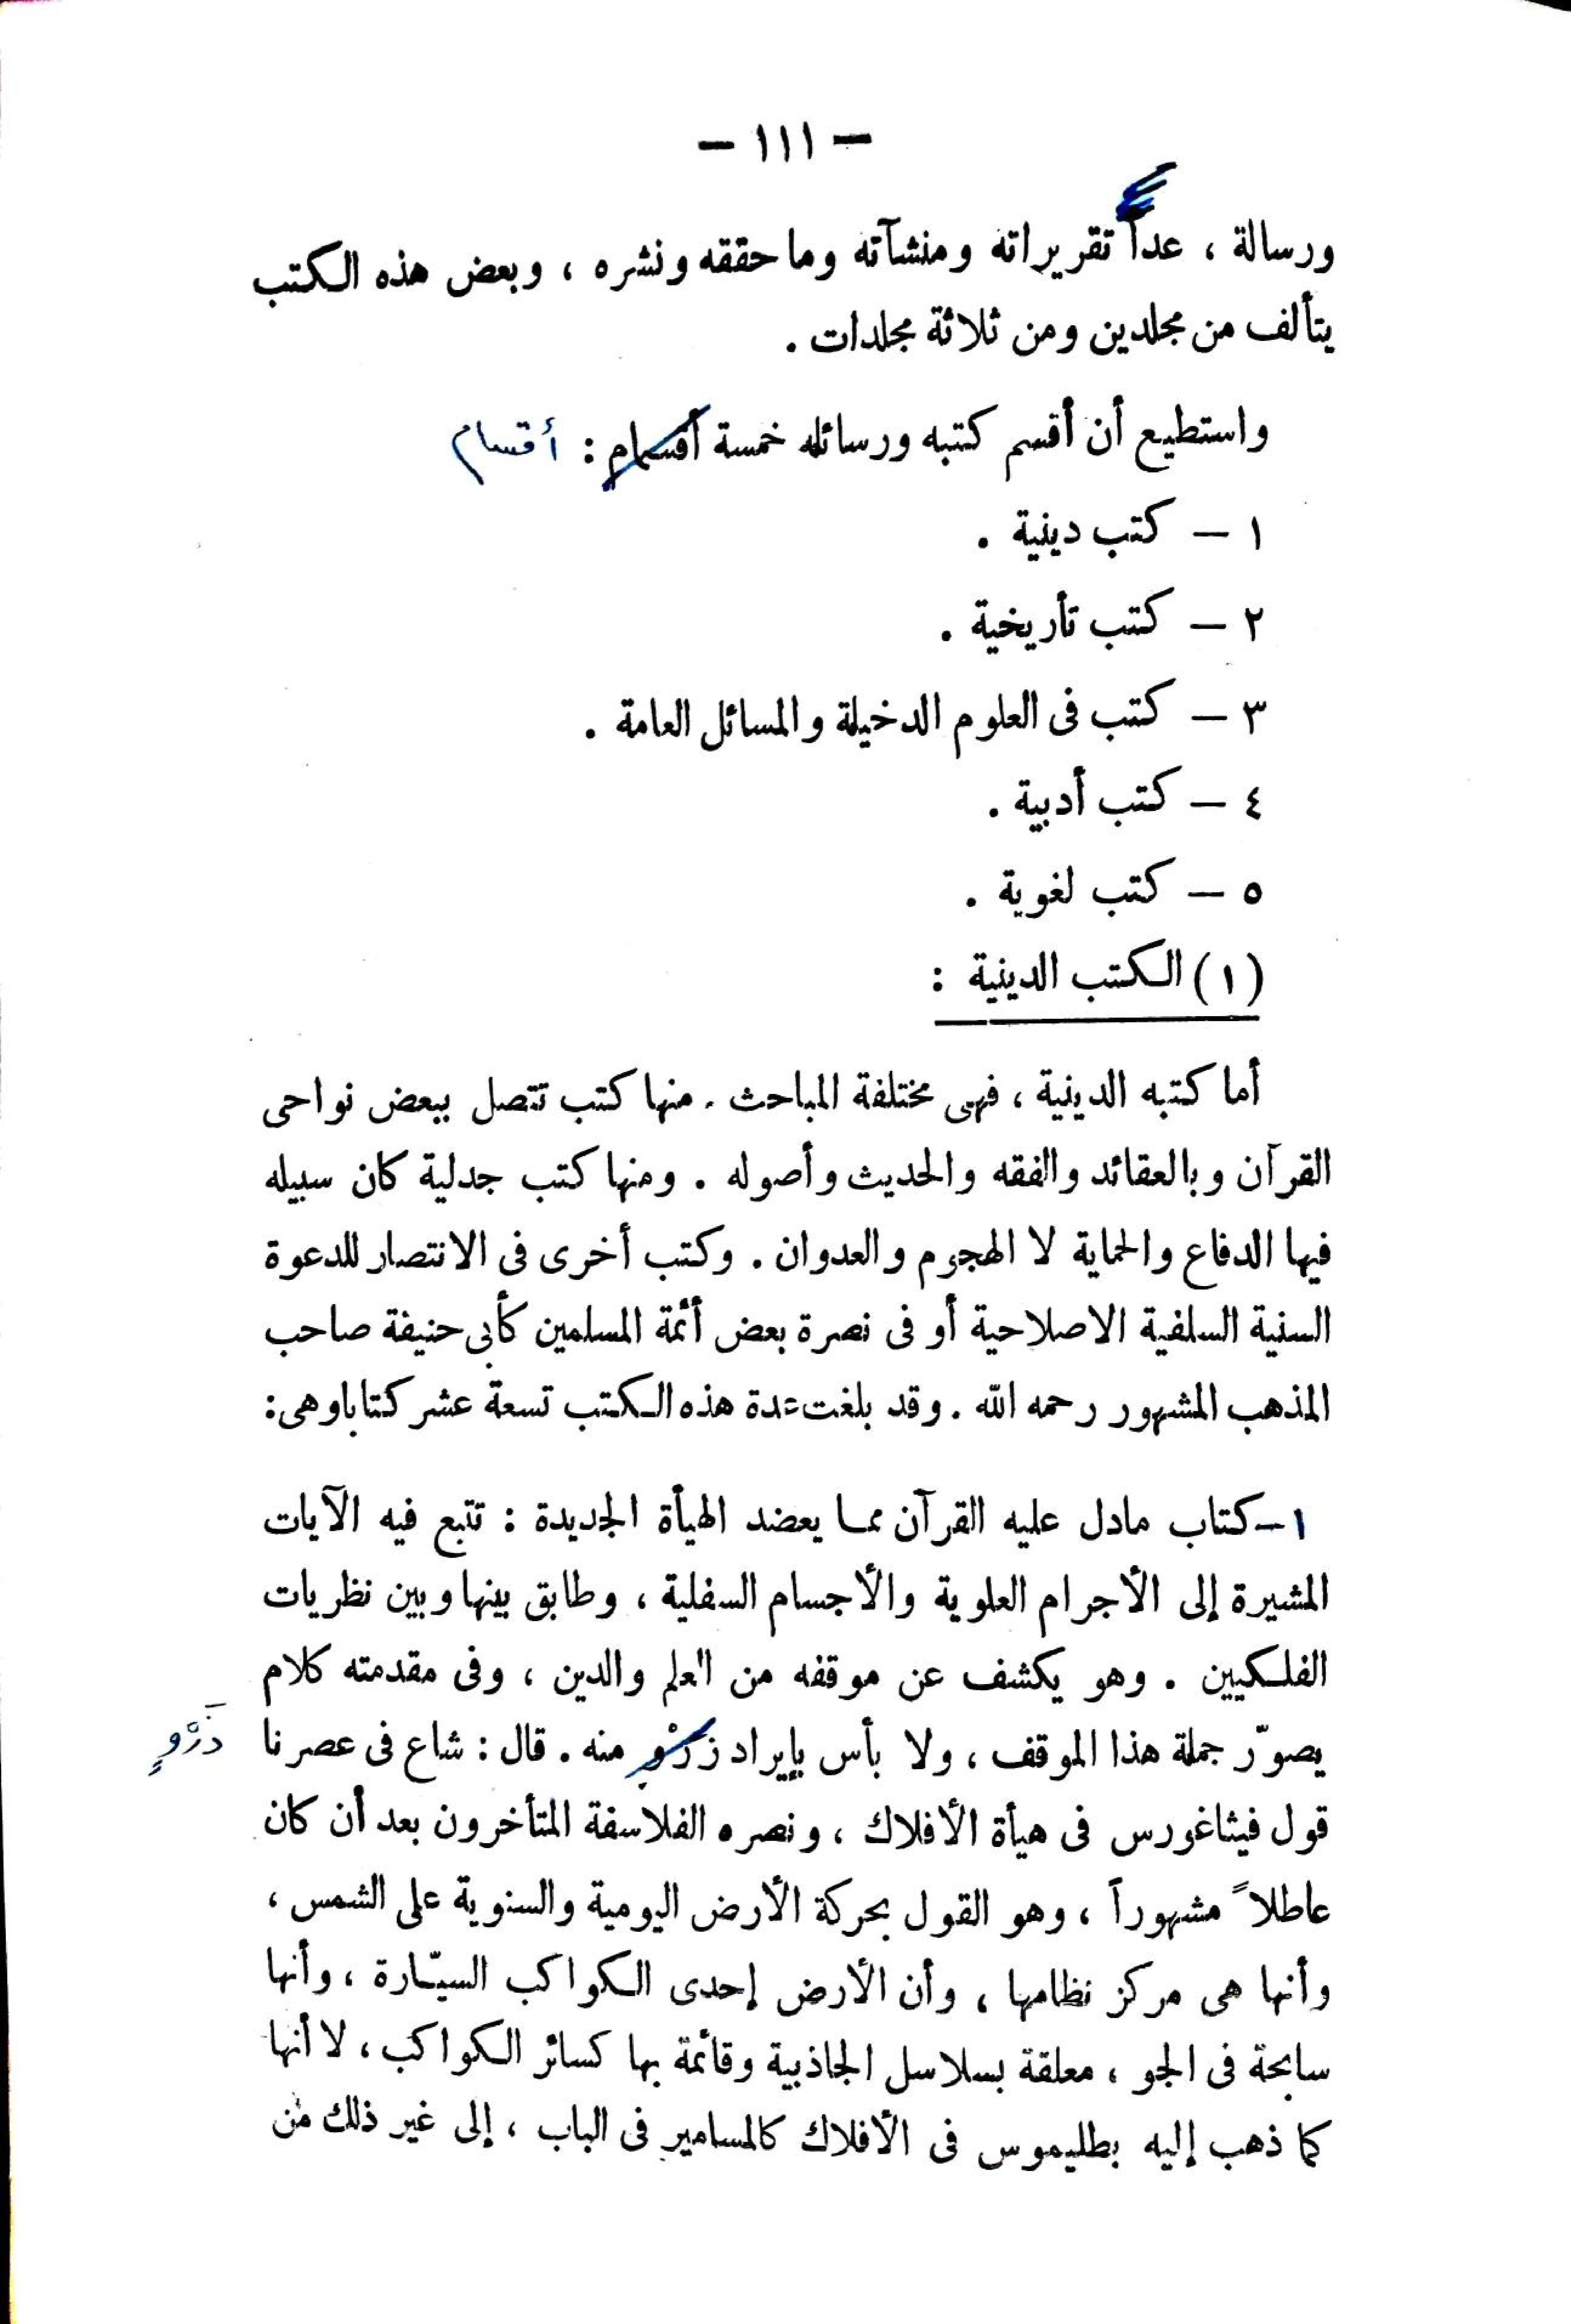 — ١١١ —
ورسالة ، عداً تقريراته ومنشآته وما حققه ونشره ، وبعض هذه الكتب
يتألف من مجلدين ومن ثلاثة مجلدات .
واستطيع أن أقسم كتبه ورسائله خمسة أقسام : أقسام
١ — كتب دينية .
٢ — كتب تأريخية .
٣ — كتب فى العلوم الدخيلة والمسائل العامة .
٤ — كتب أدبية .
٥ — كتب لغوية .
(١) الكتب الدينية :
أما كتبه الدينية ، فهى مختلفة المباحث . منها كتب تتصل ببعض نواحى
القرآن وبالعقائد والفقه والحديث وأصوله . ومنها كتب جدلية كان سبيله
فيها الدفاع والحماية لا الهجوم والعدوان . وكتب أخرى فى الانتصار للدعوة
السنية السلفية الاصلاحية أو فى نصرة بعض أئمة المسلمين كأبى حنيفة صاحب
المذهب المشهور رحمه الله . وقد بلغت عدة هذه الكتب تسعة عشر كتابا وهى :
١ — كتاب مادل عليه القرآن مما يعضد الهيأة الجديدة : تتبع فيه الآيات
المشيرة إلى الأجرام العلوية والأجسام السفلية ، وطابق بينها وبين نظريات
الفلكيين . وهو يكشف عن موقفه من العلم والدين ، وفى مقدمته كلام
يصوّر جملة هذا الموقف ، ولا بأس بإيراد زرْو منه . قال : شاع فى عصرنا ذَرْوٍ
قول فيثاغورس فى هيأة الأفلاك ، ونصره الفلاسفة المتأخرون بعد أن كان
عاطلاً مشهوراً ، وهو القول بحركة الأرض اليومية والسنوية على الشمس ،
وأنها هى مركز نظامها ، وأن الأرض إحدى الكواكب السيّارة ، وأنها
سابحة فى الجو ، معلقة بسلاسل الجاذبية وقائمة بها كسائر الكواكب ، لا أنها
كما ذهب إليه بطليموس فى الأفلاك كالمسامير فى الباب ، إلى غير ذلك من